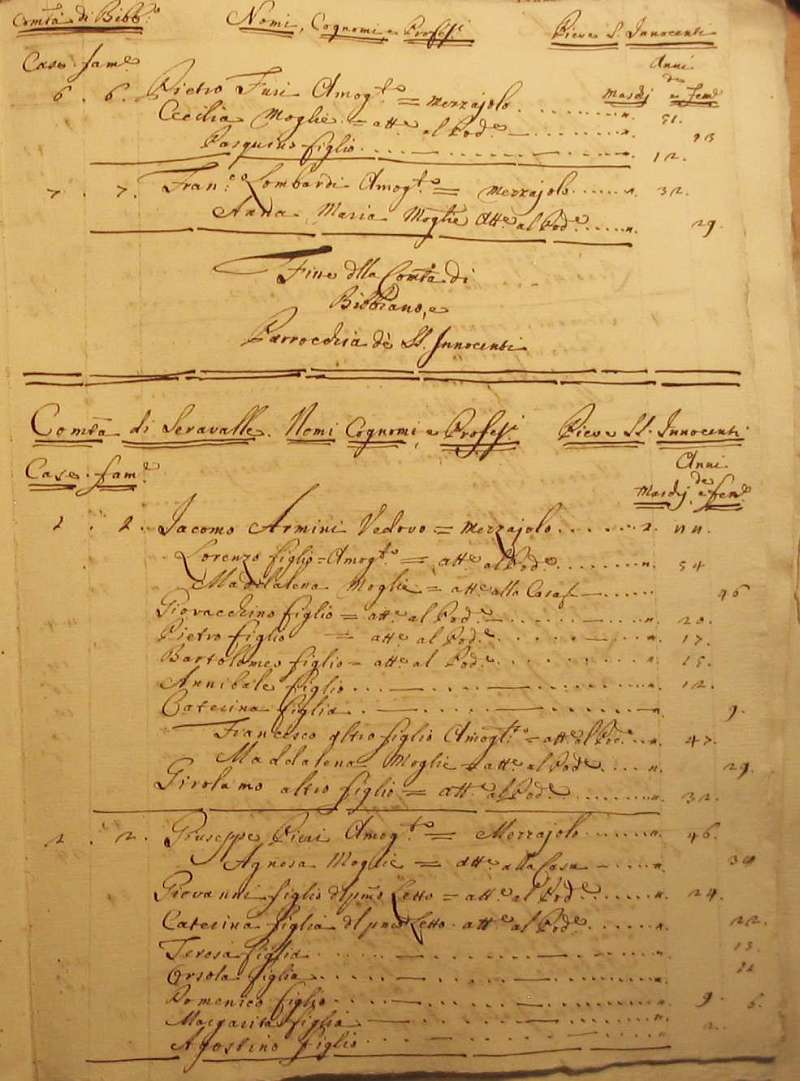 Comtà di Bibb.o Nomi, Cognomi, e Profess.i Pieve SS. Innocenti
Case. fam.e Anni
de
Maschj e fem.e
6. 6. Pietro Fusi Amog.to = Mezzajolo 51.
Cecilia Moglie = att.e al Pod.e
Pasquino figlio 12.
7. 7. Fran.co Lombardi Amog.to = Mezzajolo 32.
Anna Maria Moglie Att.e al Pod.e 29.
Fine dlla Comtà di
Bibbiano, e
Parrocchia dè SS. Innocenti
Comtà di Seravalle. Nomi Cognomi, e Profess.i Pieve SS. Innocenti
Case. fam.e Anni
de
Maschj. e fem.e
Jacomo Armini Vedovo = Mezzajolo
Lorenzo figlio = Amog.to = att.e al Pod.e 54
Maddalena Moglie = att.e alla Casa 46
Giovacchino figlio = att.e al Pod.e 20.
Pietro figlio = att.e al Pod.e 17.
Bartolomeo figlio = att.e al Pod.e 15.
Annibale figlio 12.
Caterina figlia 9.
Francesco altro figlio Amog.to = att.e al Pod.e 47.
Maddalena Moglie = att.e al Pod.e 29.
Girolamo altro figlio = att.e al Pod.e 32.
2. 2. Giuseppe Pieri Amog.to = Mezzajolo 46.
Agnesa Moglie = att.e alla Casa
Giovanni figlio dl pmo Letto = att.e al Pod.e 24.
Caterina figlia dl pmo Letto att.e al Pod.e 22.
Teresa figlia 13.
Orsola figlia
Domenico figlio 9.
Margarita figlia 6.
Agostino figlio 2.